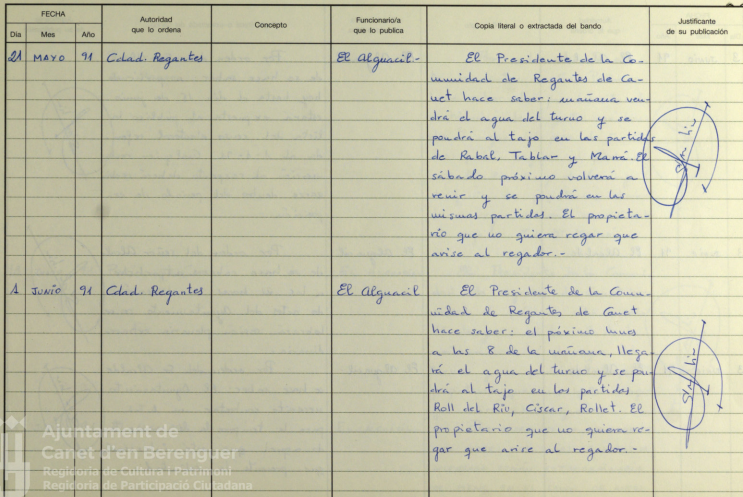 FECHA
Día Mes Año
Autoridad
que lo ordena
Concepto
Funcionario/a
que lo publica
Copia literal o extractada del bando
Justificante
de su publicación
21 MAYO 91 Cdad. Regantes El Alguacil.- El Presidente de la Co-
munidad de Regantes de Ca-
net hace saber: mañana ven-
drá el agua del turno y se
pondrá al tajo en las partidas
de Rabal, Tablar y Marrá. El
sábado próximo volverá a
venir y se pondrá en las
mismas partidas. El propieta-
rio que no quiera regar que
avise al regador.-
1 JUNIO 91 Cdad. Regantes El Alguacil El Presidente de la Comu-
nidad de Regantes de Canet
hace saber: el póximo lunes
a las 8 de la mañana, llega-
rá el agua del turno y se pon
drá al tajo en las partidas
Roll del Riu, Ciscar, Rollet. El
propietario que no quiera re-
gar que avise al regador.-
Ajuntament de
Canet d'en Berenguer
Regidoria de Cultura i Patrimoni
Regidoria de Participació Ciutadana